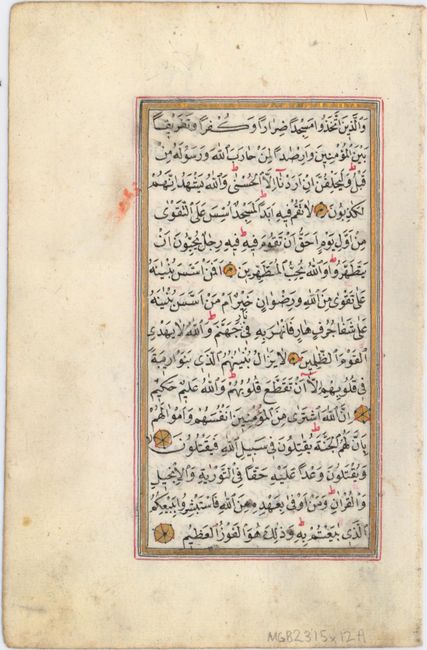 وَالَّذِينَ اتَّخَذُوا مَسْجِدًا ضِرَارًا وَكُفْرًا وَتَفْرِيقًا
بَيْنَ الْمُؤْمِنِينَ وَاِرْصَادًا لِمَنْ حَارَبَ اللهَ وَرَسُولَهُ مِنْ
قَبْلُ وَلَيَحْلِفُنَّ اِنْ اَرَدْنَا اِلَّا الْحُسْنٰى وَاللهُ يَشْهَدُ اِنَّهُمْ
لَكَاذِبُونَ لَا تَقُمْ فِيهِ اَبَدًا لَمَسْجِدٌ اُسِّسَ عَلَى التَّقْوٰى
مِنْ اَوَّلِ يَوْمٍ اَحَقُّ اَنْ تَقُومَ فِيهِ فِيهِ رِجَالٌ يُحِبُّونَ اَنْ
يَتَطَهَّرُوا وَاللهُ يُحِبُّ الْمُطَّهِّرِينَ اَفَمَنْ اَسَّسَ بُنْيَانَهُ
عَلٰى تَقْوٰى مِنَ اللهِ وَرِضْوَانٍ خَيْرٌ اَمْ مَنْ اَسَّسَ بُنْيَانَهُ
عَلٰى شَفَا جُرُفٍ هَارٍ فَانْهَارَ بِهِ فِي نَارِ جَهَنَّمَ وَاللهُ لَا يَهْدِي
الْقَوْمَ الظَّالِمِينَ لَا يَزَالُ بُنْيَانُهُمُ الَّذِي بَنَوْا رِيبَةً
فِي قُلُوبِهِمْ اِلَّا اَنْ تَقَطَّعَ قُلُوبُهُمْ وَاللهُ عَلِيمٌ حَكِيمٌ
اِنَّ اللهَ اشْتَرٰى مِنَ الْمُؤْمِنِينَ اَنْفُسَهُمْ وَاَمْوَالَهُمْ
بِاَنَّ لَهُمُ الْجَنَّةَ يُقَاتِلُونَ فِي سَبِيلِ اللهِ فَيَقْتُلُونَ
وَيُقْتَلُونَ وَعْدًا عَلَيْهِ حَقًّا فِي التَّوْرٰيةِ وَالْاِنْجِيلِ
وَالْقُرْاٰنِ وَمَنْ اَوْفٰى بِعَهْدِهِ مِنَ اللهِ فَاسْتَبْشِرُوا بِبَيْعِكُمُ
الَّذِي بَايَعْتُمْ بِهِ وَذٰلِكَ هُوَ الْفَوْزُ الْعَظِيمُ
MGB2315x12A